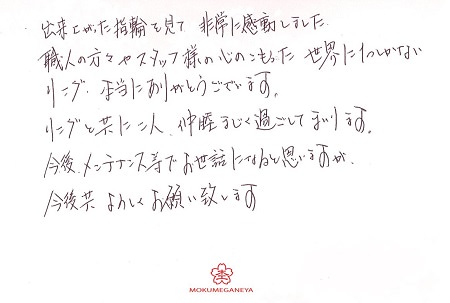 出来上がった指輪を見て 非常に感動しました
職人の方々やスタッフ様の心のこもった 世界に1つしかない
リング、本当にありがとうございます。
リングと共に二人、仲睦まじく過ごしてまいります。
今後、メンテナンス等でお世話になると思いますが、
今後共 よろしくお願い致します
MOKUMEGANEYA